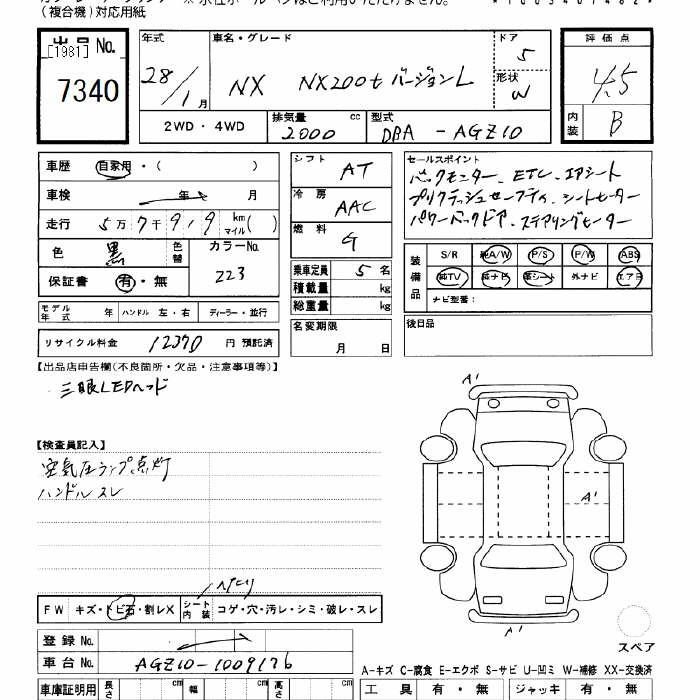 (複合機)対応用紙
出品 No.
[1981]
7340
年式 車名・グレード ドア 5
28/1月 NX NX200t バージョンL 形状 W
2WD・4WD 排気量 cc 2000 型式 DBA-AGZ10
評価点
4.5
内装 B
車歴 自家用・( )
車検 年 月
走行 5万7千9/9 km マイル( )
色 黒 色替 カラーNo. 223
保証書 有・無
モデル年式 年 ハンドル 左・右 ディーラー・並行
リサイクル料金 12370 円 預託済
シフト AT
冷房 AAC
燃料 G
乗車定員 5名
積載量 kg
総重量 kg
名変期限
月 日
セールスポイント
バックモニター、ETC、エアシート
プリクラッシュセーフティ、シートヒーター
パワーバックドア、ステアリングヒーター
装備品 S/R 純A/W P/S P/W ABS
純TV 純ナビ 革シート 外ナビ エアB
ナビ型番:
後日品
【出品店申告欄(不良箇所・欠品・注意事項等)】
三眼LEDヘッド
【検査員記入】
空気圧ランプ点灯
ハンドルスレ
A'
A'
A'
スペア
FW キズ・トビ石・割レX シート内装 コゲ・穴・汚レ・シミ・破レ・スレ
登録 No.
車台 No. AGZ10-1009176
車庫証明用 長さ cm 幅 cm 高さ cm
A-キズ C-腐食 E-エクボ S-サビ U-凹ミ W-補修 XX-交換済
工具 有・無 ジャッキ 有・無